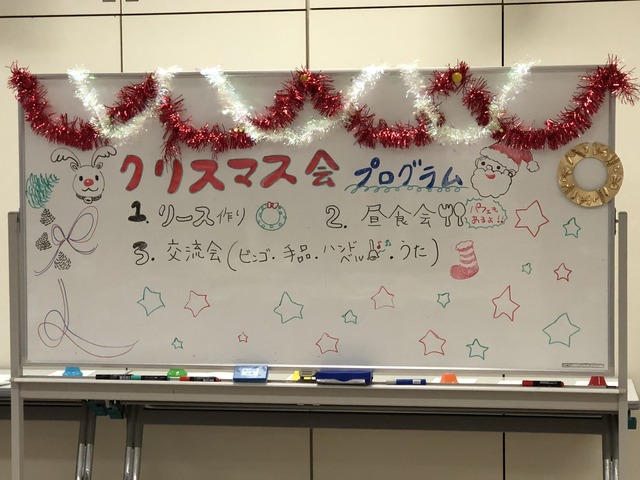 クリスマス会 プログラム
1. リース作り 2. 昼食会
パフェもあるよ!!
3. 交流会(ビンゴ・手品・ハンドベル・うた)